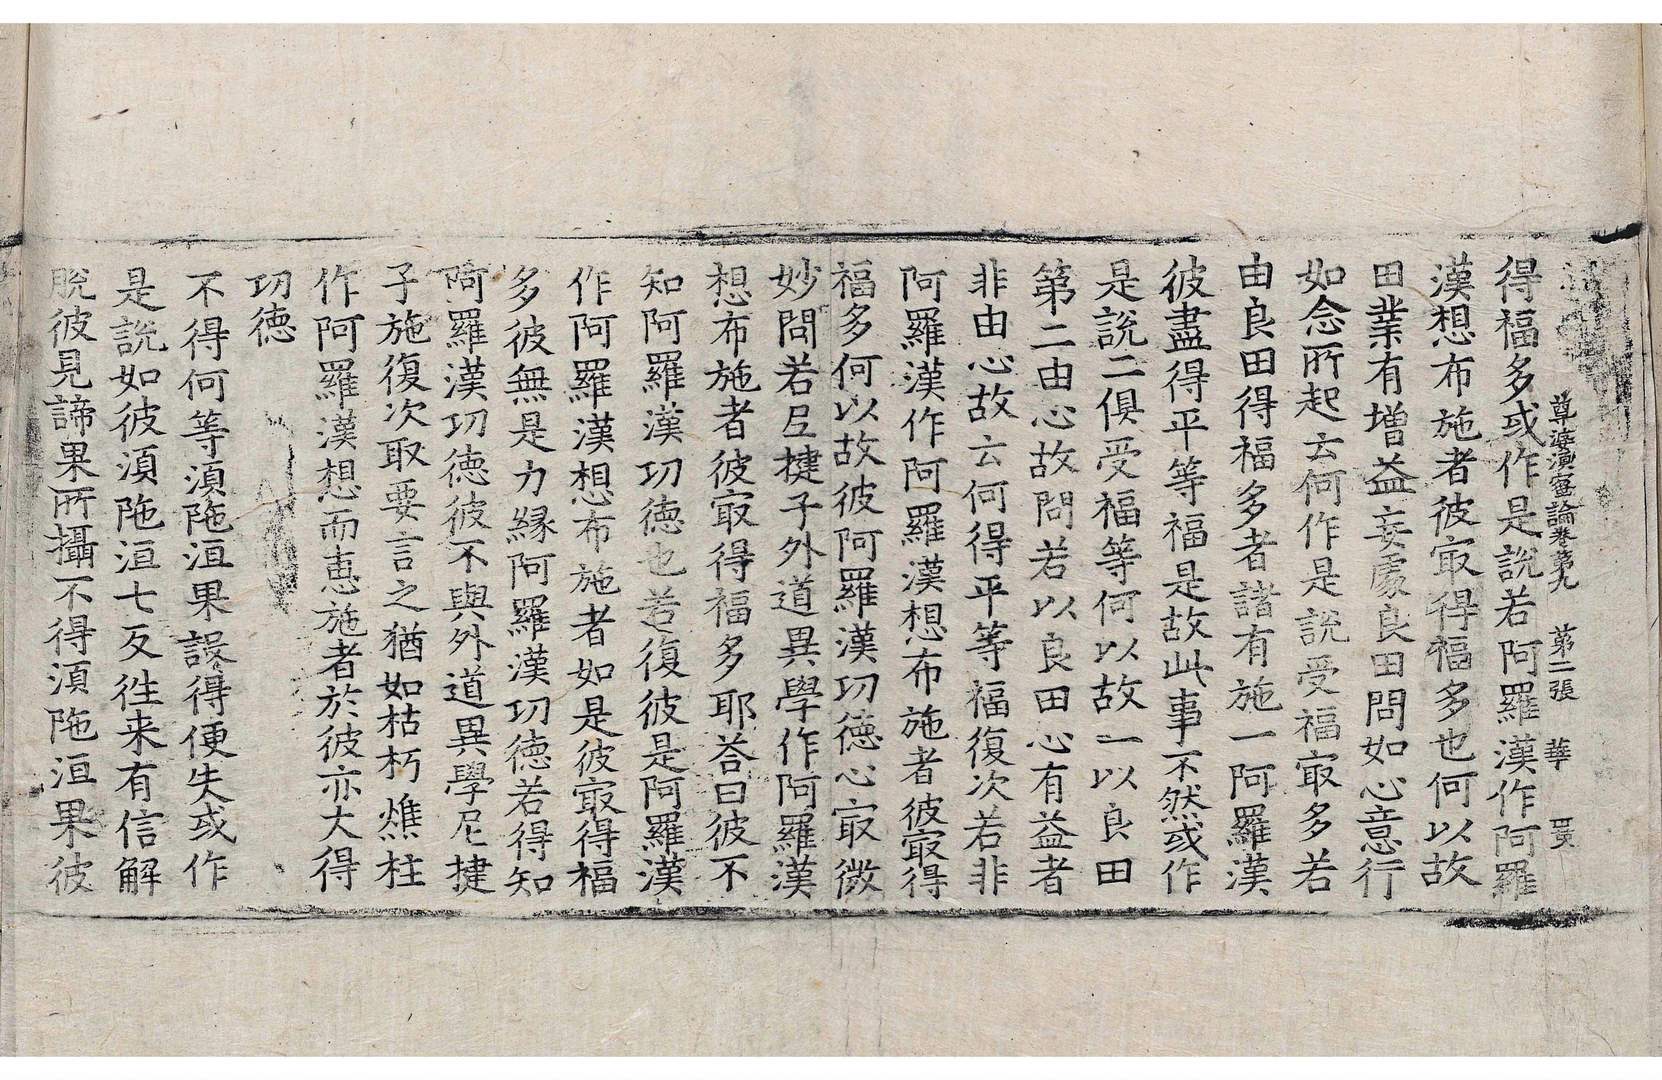 尊婆湏蜜論卷第九　第二張　華
得福多或作是說若阿羅漢作阿羅
漢想布施者彼㝡得福多也何以故
田業有增益妄處良田問如心意行
如念所起云何作是說受福㝡多若
由良田得福多者諸有施一阿羅漢
彼盡得平等福是故此事不然或作
是說二俱受福等何以故一以良田
第二由心故問若以良田心有益者
非由心故云何得平等福復次若非
阿羅漢作阿羅漢想布施者彼㝡得
福多何以故彼阿羅漢功德心㝡微
妙問若𡰱揵子外道異學作阿羅漢
想布施者彼㝡得福多耶荅曰彼不
知阿羅漢功德也若復彼是阿羅漢
作阿羅漢想布施者如是彼㝡得福
多彼無是力緣阿羅漢功德若得知
阿羅漢功德彼不與外道異學尼揵
子施復次取要言之猶如枯朽燋柱
作阿羅漢想而惠施者於彼亦大得
功德
不得何等湏陁洹果設得便失或作
是說如彼湏陁洹七反徃来有信解
脫彼見諦果所攝不得湏陁洹果彼